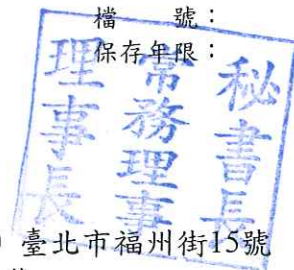 檔　　號：
保存年限：
秘書長
常務理事
理事長
臺北市福州街15號